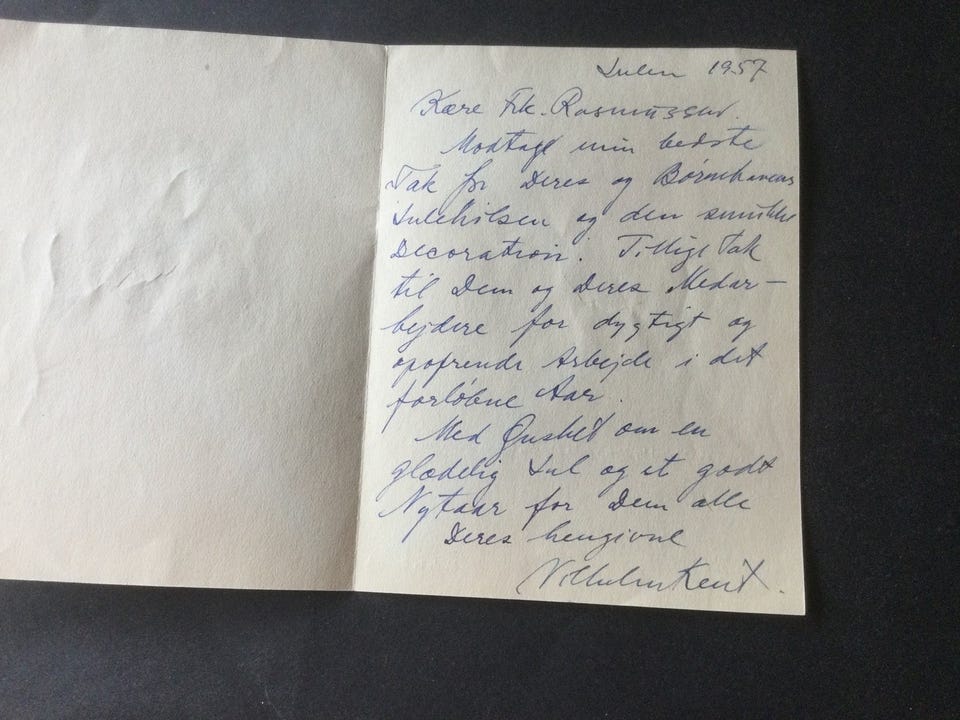 Julen 1957
Kære Frk. Rasmussen.
Modtag min bedste
Tak for Deres og Børnehavens
Julehilsen og den smukke
Decoration. Tillige Tak
til Dem og Deres Medar-
bejdere for dygtigt og
opofrende Arbejde i det
forløbne Aar.
Med Ønsket om en
glædelig Jul og et godt
Nytaar for Dem alle
Deres hengivne
Vilhelm Kent.